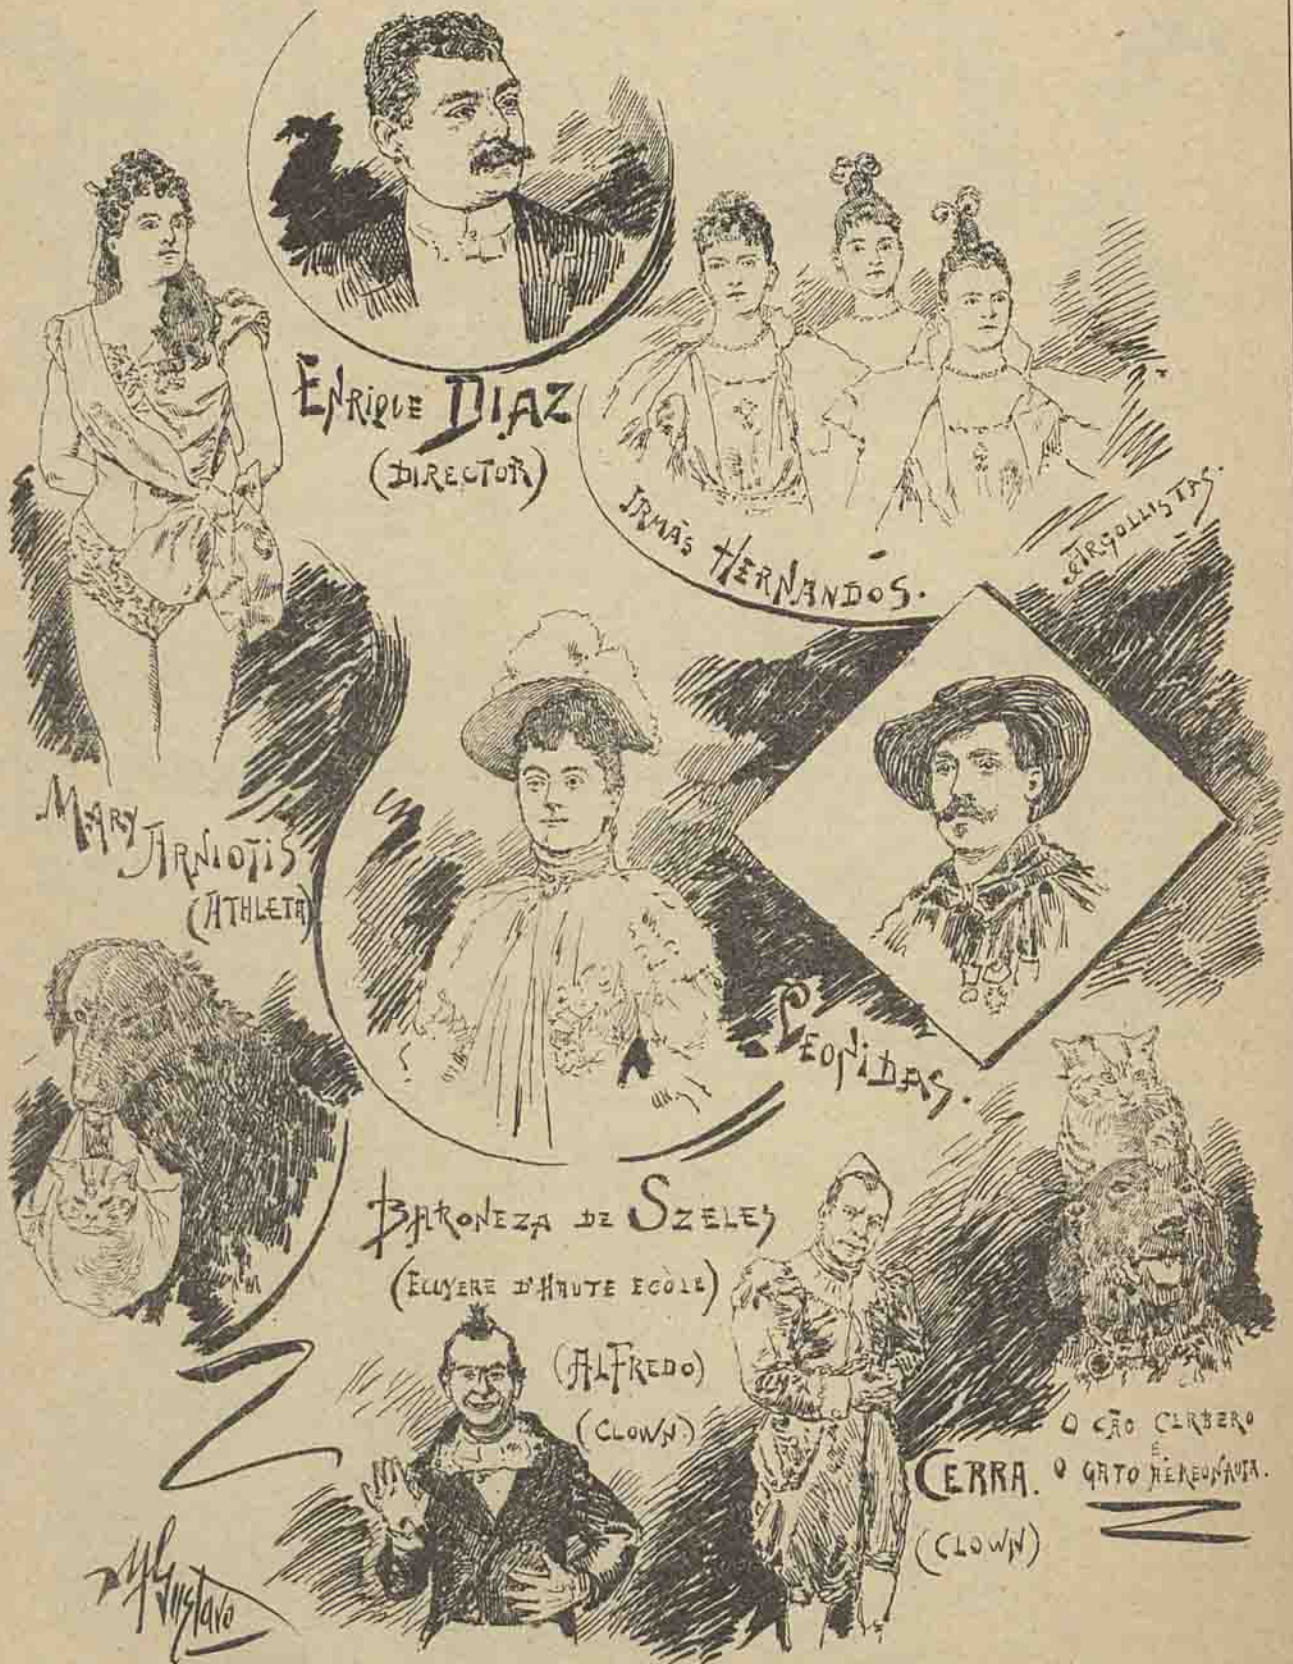 ENRIQUE DIAZ
(DIRECTOR)
IRMÃS HERNANDOS.
ARGOLLISTAS.
MARY ARNIOTIS
(ATHLETA)
LEONIDAS.
BARONEZA DE SZELES
(ECUYERE D'HAUTE ECÒLE)
(ALFREDO)
(CLOWN)
CERRA.
(CLOWN)
O CÃO CERBERO
E
O GATO AEREONAUTA.
M Gustavo